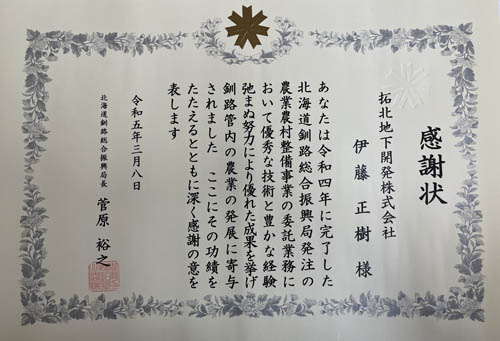 感謝状
拓北地下開発株式会社
伊藤正樹様
あなたは令和四年に完了した
北海道釧路総合振興局発注の
農業農村整備事業の委託業務に
おいて優秀な技術と豊かな経験
弛まぬ努力により優れた成果を挙げ
釧路管内の農業の発展に寄与
されました ここにその功績を
たたえるとともに深く感謝の意を
表します
令和五年三月八日
北海道釧路総合振興局長 菅原裕之